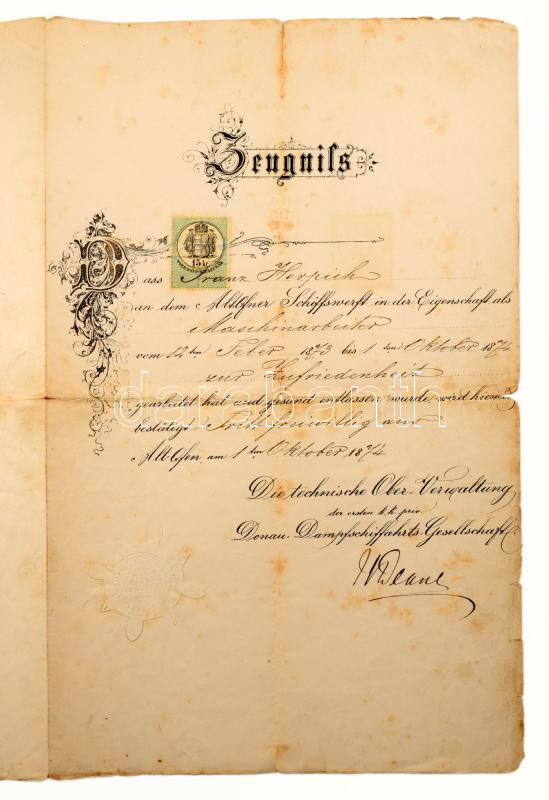 Zeugniſs
15 kr
Dass Franz Herpich
an dem Altofner Schiffswerft in der Eigenschaft als
Maschinarbeiter
vom 12ten Feber 1873 bis 1ten Oktober 1874
zur Zufriedenheit
gearbeitet hat und gesund entlassen wurde, wird hiemit
bestätigt. Tritt freiwillig aus
Altofen, am 1ten Oktober 1874
Die technische Ober-Verwaltung
der ersten k.k. priv.
Donau-Dampfschiffahrts-Gesellschaft
darabanth